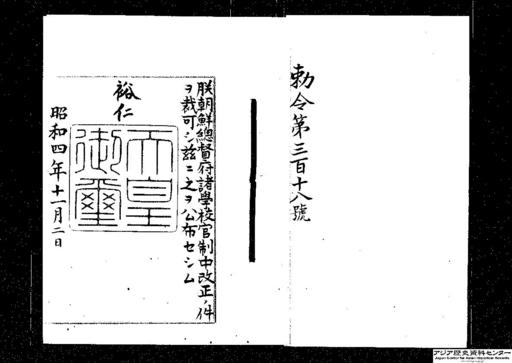 勅令第三百十八號
朕朝鮮總督府諸學校官制中改正ノ件
ヲ裁可シ茲ニ之ヲ公布セシム
裕仁
天皇
御璽
昭和四年十一月二日
アジア歴史資料センター
Japan Center for Asian Historical Records